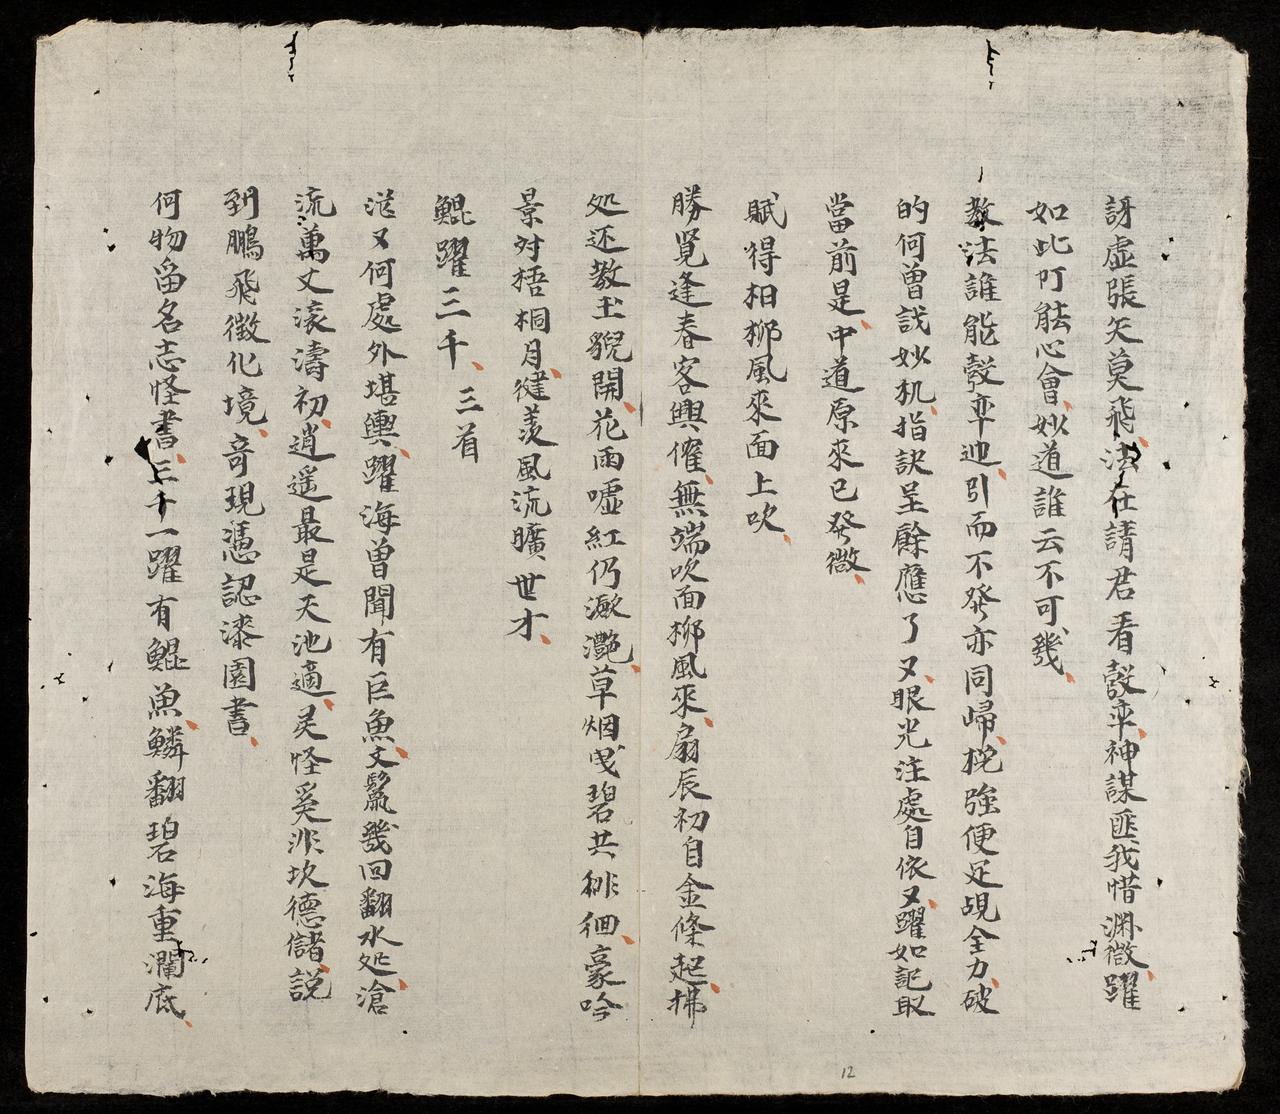 訝虛張矢莫飛法在請君看彀率神謀匪我惜淵微躍
如此可能心會妙道誰云不可幾
教法誰能彀率迎引而不發亦同歸挽強便足覘全力破
的何曾説妙机指訣呈餘應了又眼光注處自依又躍如記取
當前是中道原來已發微
賦得柏柳風來面上吹
勝覽逢春客興催無端吹面柳風來扇辰初自金條起拂
処还教玉貌開花雨噓紅仍瀲灧草烟曵碧共徘徊豪吟
景対梧桐月徤羨風流曠世才
鯤躍三千 三首
从又何處外堪輿躍海曾聞有巨魚丈鬣幾回翻水処滄
流萬丈滚濤初逍遥最是天池適灵怪奚非坎德儲説
到鵬飛徵化境竒現憑認漆園書
何物畄名志怪書三千一躍有鯤魚鱗翻碧海重瀾底
12